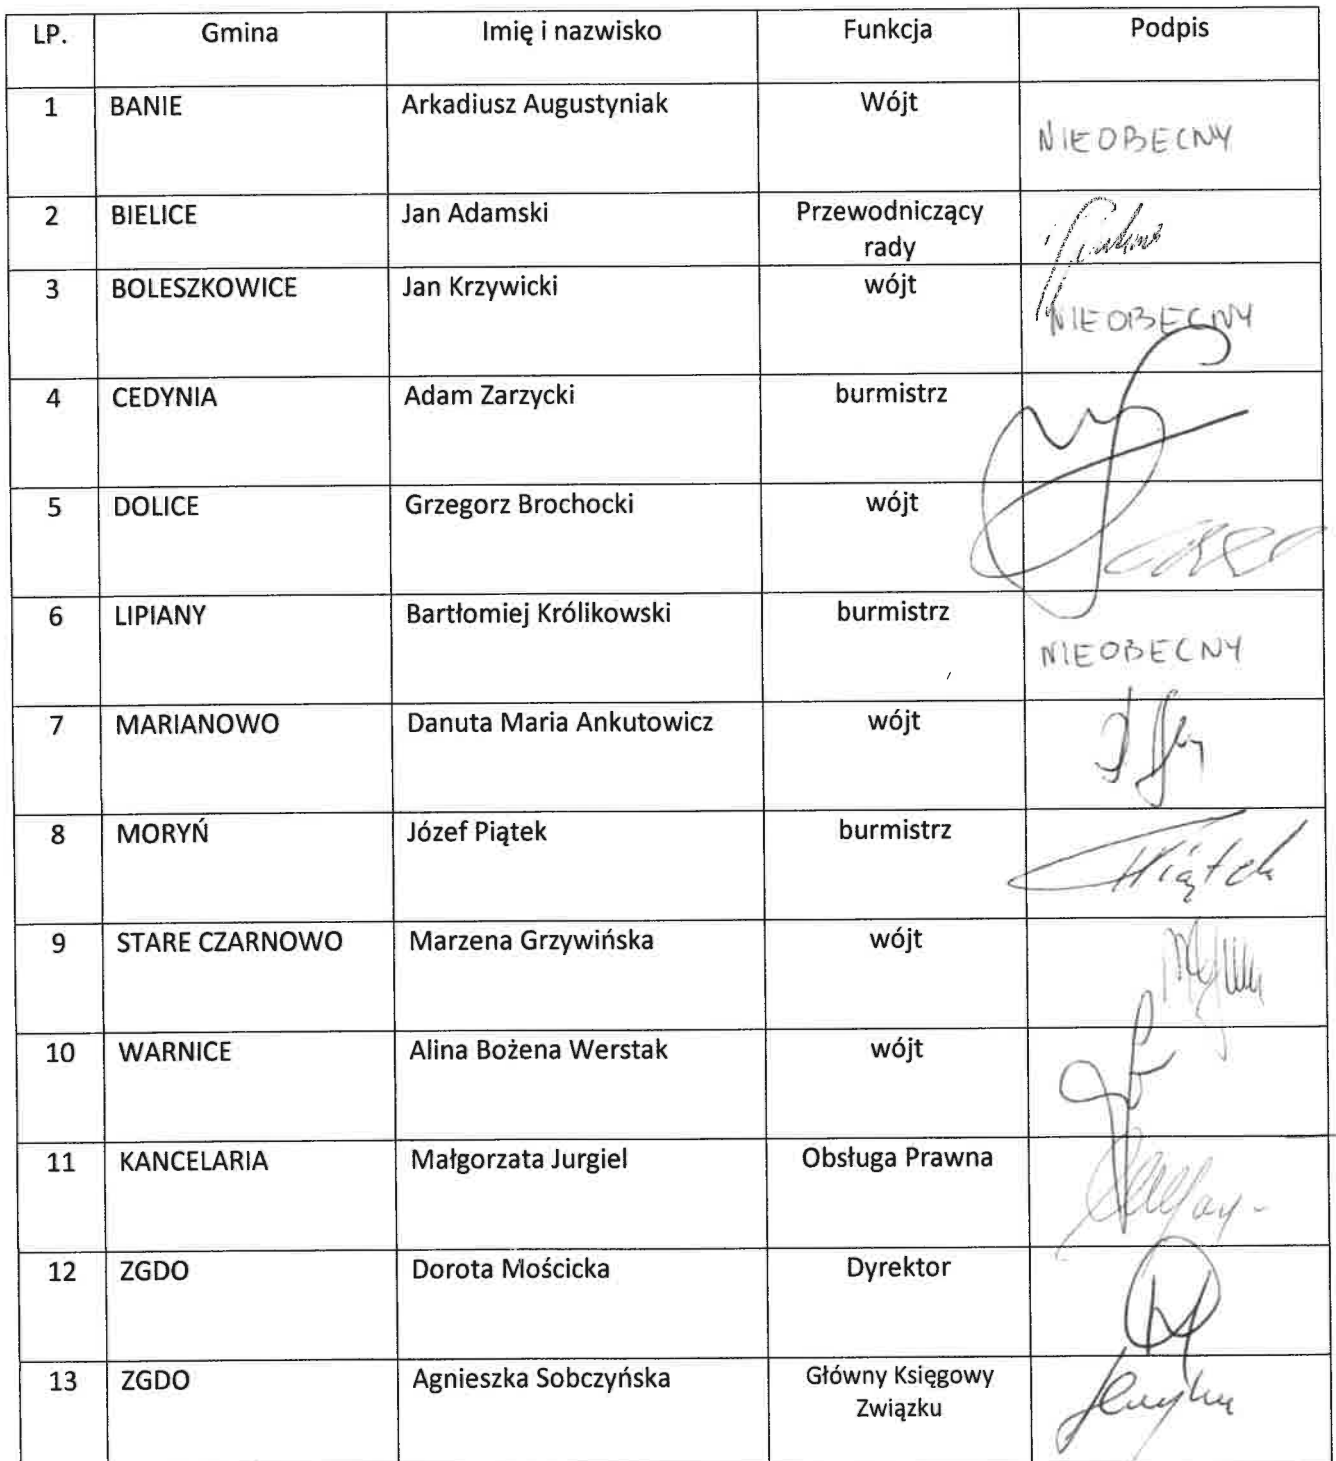 LP. Gmina Imię i nazwisko Funkcja Podpis
1 BANIE Arkadiusz Augustyniak Wójt NIEOBECNY
2 BIELICE Jan Adamski Przewodniczący rady
3 BOLESZKOWICE Jan Krzywicki wójt NIEOBECNY
4 CEDYNIA Adam Zarzycki burmistrz
5 DOLICE Grzegorz Brochocki wójt
6 LIPIANY Bartłomiej Królikowski burmistrz NIEOBECNY
7 MARIANOWO Danuta Maria Ankutowicz wójt
8 MORYŃ Józef Piątek burmistrz Piątek
9 STARE CZARNOWO Marzena Grzywińska wójt
10 WARNICE Alina Bożena Werstak wójt
11 KANCELARIA Małgorzata Jurgiel Obsługa Prawna
12 ZGDO Dorota Mościcka Dyrektor
13 ZGDO Agnieszka Sobczyńska Główny Księgowy Związku